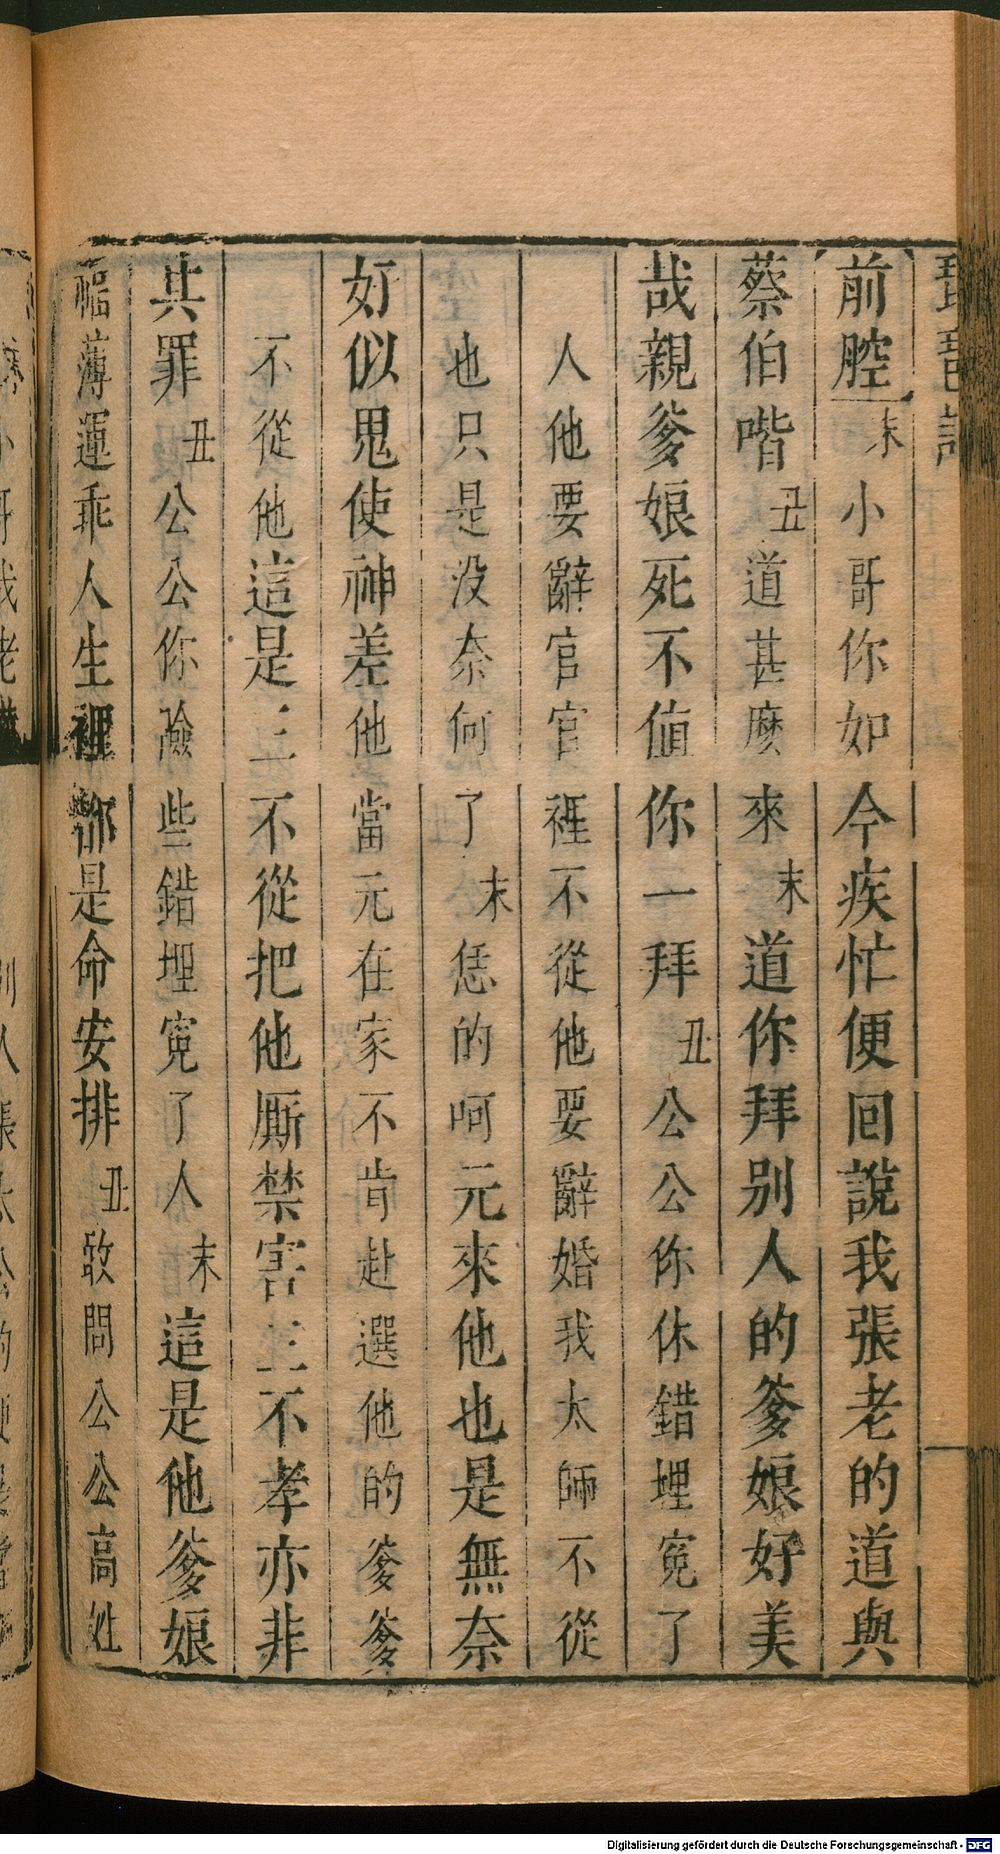 琵琶記
前腔末小哥你如今疾忙便回說我張老的道與
蔡伯喈丑道甚麽來末道你拜别人的爹娘好美
哉親爹娘死不值你一拜丑公公你休錯埋寃了
人他要辭官官裡不從他要辭婚我太師不從
也只是没奈何了末恁的呵元來他也是無奈
好似鬼使神差他當元在家不肯赴選他的爹爹
不從他這是三不從把他厮禁害三不孝亦非
其罪丑公公你險些錯埋寃了人末這是他爹娘
福薄運乖人生裡都是命安排丑敢問公公高姓
Digitalisierung gefördert durch die Deutsche Forschungsgemeinschaft - DFG